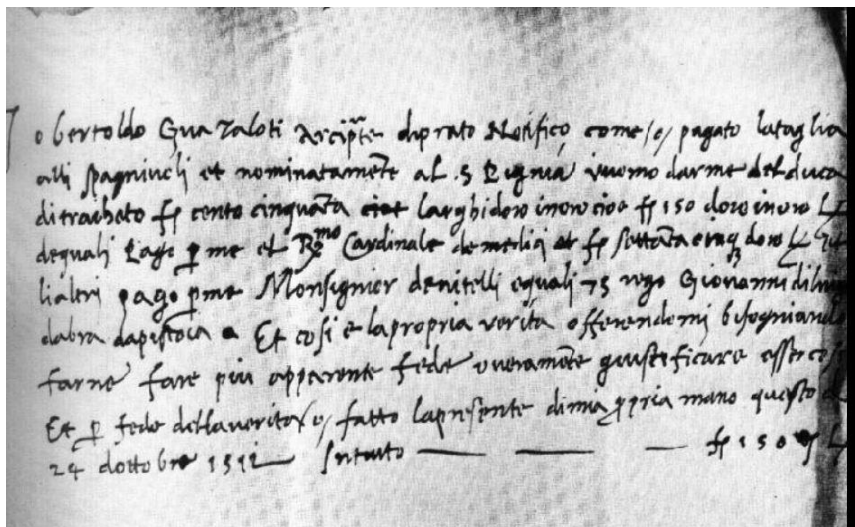 Io bertoldo Gua Zaloti Arcip.te diprato Notifico come /o/ pagato lataglia
alli spagniuoli et nominatamēte al .S. vuomo darme del duca
ditraiheto fj cento cinquāta larghidoro inoro cioe fj 150 doro inoro
dequali pago ꝑ me el R.mo Cardinale demedici fj settāta cinq doro
lialtri pago ꝑme Monsignior devitelli equali 75 Giovanni di
dapistoia Et cosi e lapropria verita offerendomi bisogniando
farne fare piu apparente fede overamēte giustificare esser cosi
Et ꝑ fede dellaverita /o/ fatto lapresente dimia ꝓpria mano questo
24 dottobre 1512 Intuto — — — fj 150